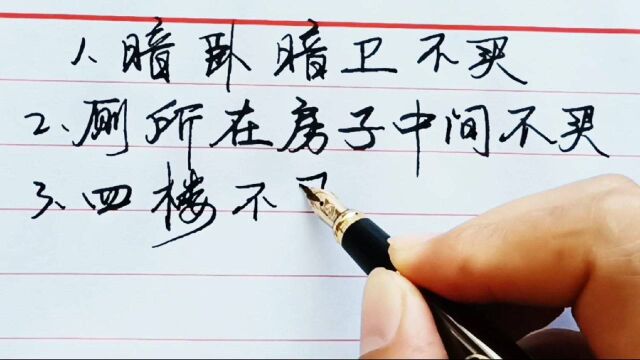 1、暗卧暗卫不买
2、厕所在房子中间不买
3、四楼不